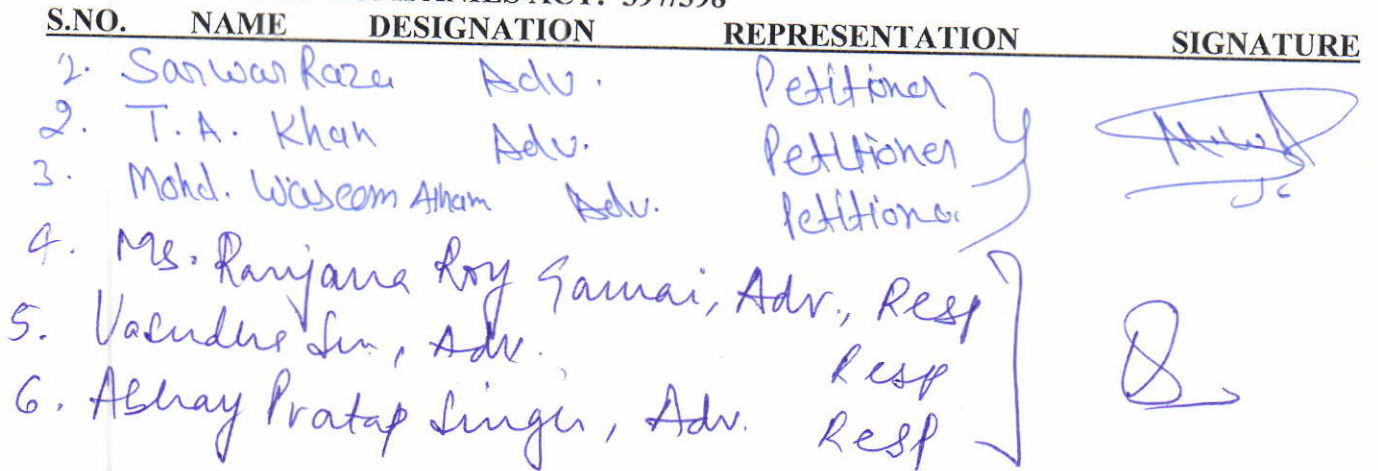 COMPANIES ACT: 397/398
S.NO. NAME DESIGNATION REPRESENTATION SIGNATURE
1. Sarwar Raza Adv. Petitioner
2. T.A. Khan Adv. Petitioner
3. Mohd. Waseem Adv. Petitioner
4. Ms. Ranjana Roy Gawai, Adv., Resp
5. Vasudha Sen, Adv. Resp
6. Abhay Pratap Singh, Adv. Resp